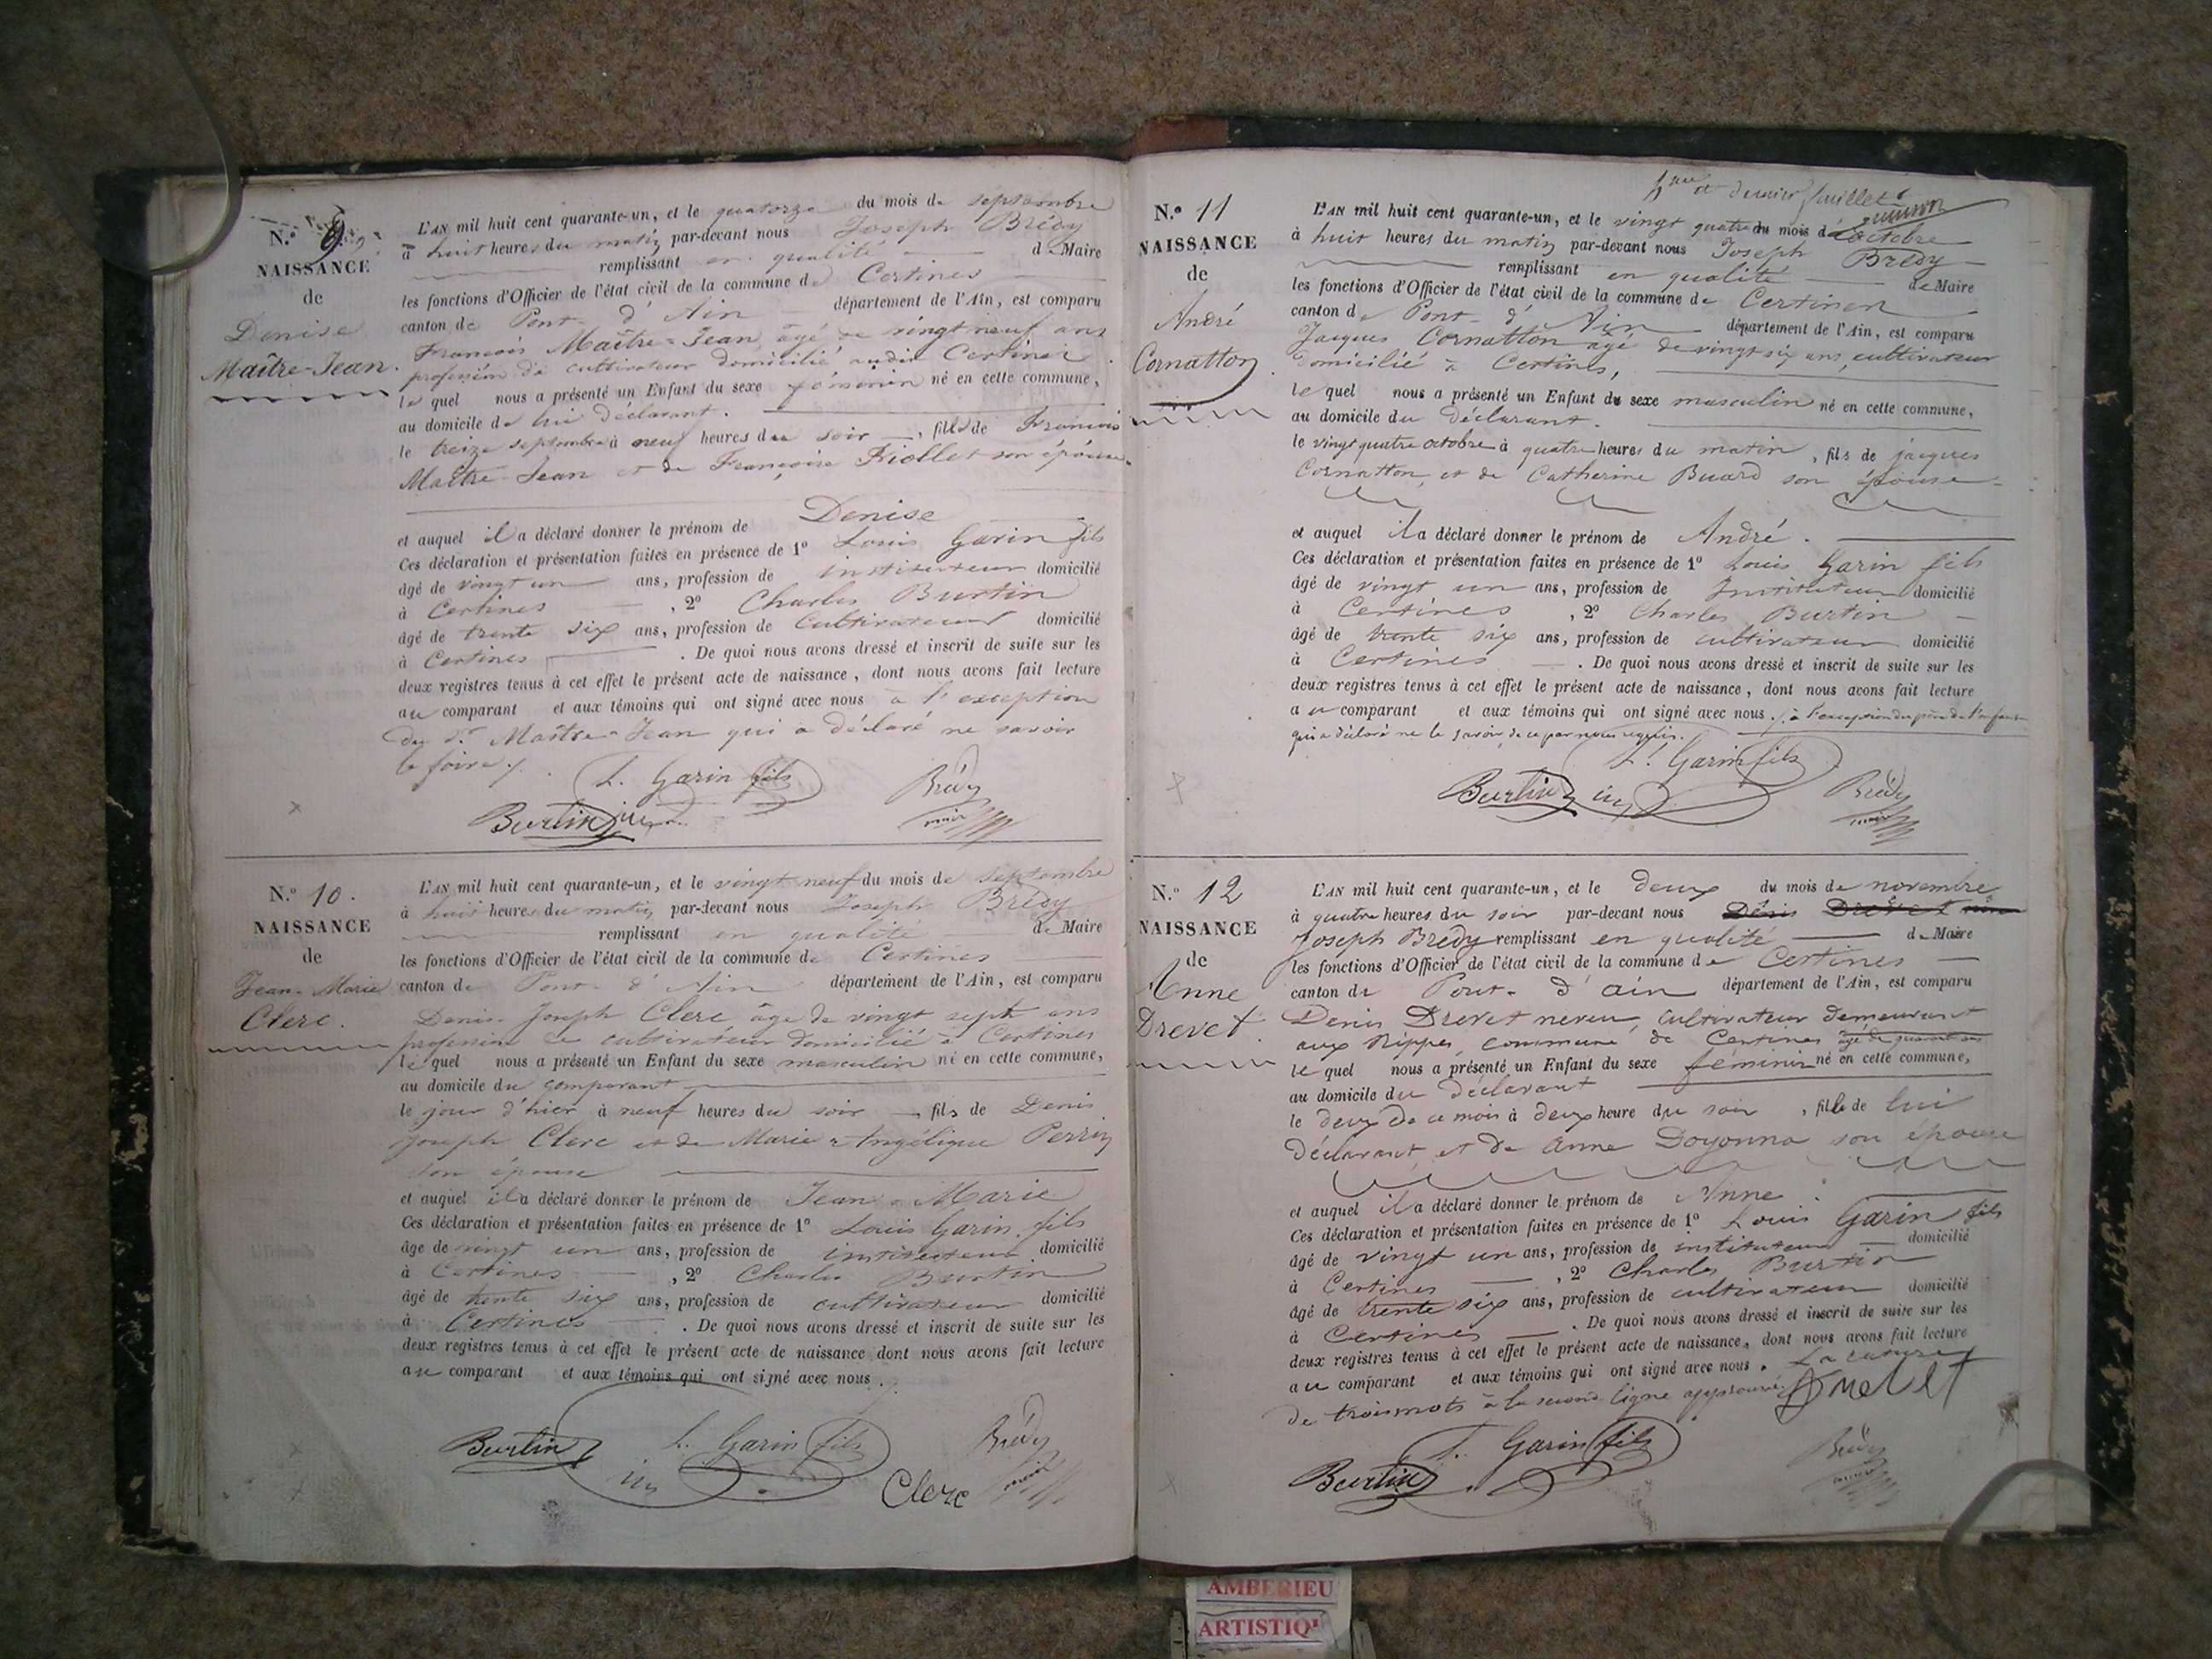 N.º 9.
NAISSANCE
de
Denise
Maître-Jean.
L'AN mil huit cent quarante-un, et le quatorze du mois de septembre
à huit heures du matin par-devant nous Joseph Brédy
remplissant en qualité de Maire
les fonctions d'Officier de l'état civil de la commune de Certines
canton de Pont-d'Ain département de l'Ain, est comparu
François Maître-Jean, âgé de vingt neuf ans
profession de cultivateur domicilié audit Certines
lequel nous a présenté un Enfant du sexe féminin né en cette commune,
au domicile de lui déclarant.
le treize septembre à neuf heures du soir, fille de François
Maître-Jean et de Françoise son épouse.
et auquel il a déclaré donner le prénom de Denise
Ces déclaration et présentation faites en présence de 1º Louis Garin fils
âgé de vingt un ans, profession de instituteur domicilié
à Certines, 2º Charles Burtin
âgé de trente six ans, profession de Cultivateur domicilié
à Certines. De quoi nous avons dressé et inscrit de suite sur les
deux registres tenus à cet effet le présent acte de naissance, dont nous avons fait lecture
au comparant et aux témoins qui ont signé avec nous à l'exception
du dt Maître-Jean qui a déclaré ne savoir
le faire.
L. Garin fils
Brédy
Burtin
maire
N.º 10.
NAISSANCE
de
Jean-Marie
Clerc.
L'AN mil huit cent quarante-un, et le vingt neuf du mois de septembre
à huit heures du matin par-devant nous Joseph Brédy
remplissant en qualité de Maire
les fonctions d'Officier de l'état civil de la commune de Certines
canton de Pont-d'Ain département de l'Ain, est comparu
Denis-Joseph Clerc âgé de vingt sept ans
profession de cultivateur domicilié à Certines
lequel nous a présenté un Enfant du sexe masculin né en cette commune,
au domicile du comparant
le jour d'hier à neuf heures du soir, fils de Denis
Joseph Clerc et de Marie-Angélique Perrin
son épouse
et auquel il a déclaré donner le prénom de Jean-Marie
Ces déclaration et présentation faites en présence de 1º Louis Garin fils
âgé de vingt un ans, profession de instituteur domicilié
à Certines, 2º Charles Burtin
âgé de trente six ans, profession de cultivateur domicilié
à Certines. De quoi nous avons dressé et inscrit de suite sur les
deux registres tenus à cet effet le présent acte de naissance dont nous avons fait lecture
au comparant et aux témoins qui ont signé avec nous.
Burtin L. Garin fils Brédy
Clerc maire
5me et dernier feuillet
N.º 11
NAISSANCE
de
André
Cornatton.
L'AN mil huit cent quarante-un, et le vingt quatre du mois d'octobre
à huit heures du matin par-devant nous Joseph Brédy
remplissant en qualité de Maire
les fonctions d'Officier de l'état civil de la commune de Certines
canton de Pont-d'Ain département de l'Ain, est comparu
Jacques Cornatton âgé de vingt six ans, cultivateur
domicilié à Certines,
lequel nous a présenté un Enfant du sexe masculin né en cette commune,
au domicile du déclarant.
le vingt quatre octobre à quatre heures du matin, fils de jacques
Cornatton, et de Catherine Buard son épouse
et auquel il a déclaré donner le prénom de André.
Ces déclaration et présentation faites en présence de 1º Louis Garin fils
âgé de vingt un ans, profession de Instituteur domicilié
à Certines, 2º Charles Burtin
âgé de trente six ans, profession de cultivateur domicilié
à Certines. De quoi nous avons dressé et inscrit de suite sur les
deux registres tenus à cet effet le présent acte de naissance, dont nous avons fait lecture
au comparant et aux témoins qui ont signé avec nous, à l'exception du père de l'enfant
qui a déclaré ne le savoir, de ce par nous requis.
L. Garin fils
Burtin Brédy
maire
N.º 12
NAISSANCE
de
Anne
Drevet
L'AN mil huit cent quarante-un, et le deux du mois de novembre
à quatre heures du soir par-devant nous Dénis Drevet
Joseph Brédy remplissant en qualité de Maire
les fonctions d'Officier de l'état civil de la commune de Certines
canton de Pont-d'ain département de l'Ain, est comparu
Denis Drevet neveu, cultivateur demeurant
aux Rippes, commune de Certines âgé de quarante ans
lequel nous a présenté un Enfant du sexe féminin né en cette commune,
au domicile du déclarant
le deux de ce mois à deux heure du soir, fille de lui
Déclarant, et de Anne Doyonna son épouse
et auquel il a déclaré donner le prénom de Anne.
Ces déclaration et présentation faites en présence de 1º Louis Garin fils
âgé de vingt un ans, profession de instituteur domicilié
à Certines, 2º Charles Burtin
âgé de trente six ans, profession de cultivateur domicilié
à Certines. De quoi nous avons dressé et inscrit de suite sur les
deux registres tenus à cet effet le présent acte de naissance, dont nous avons fait lecture
au comparant et aux témoins qui ont signé avec nous. La rature
de trois mots à la seconde ligne approuvée.
L. Garin fils Brédy
Burtin maire
AMBERIEU
ARTISTIQU